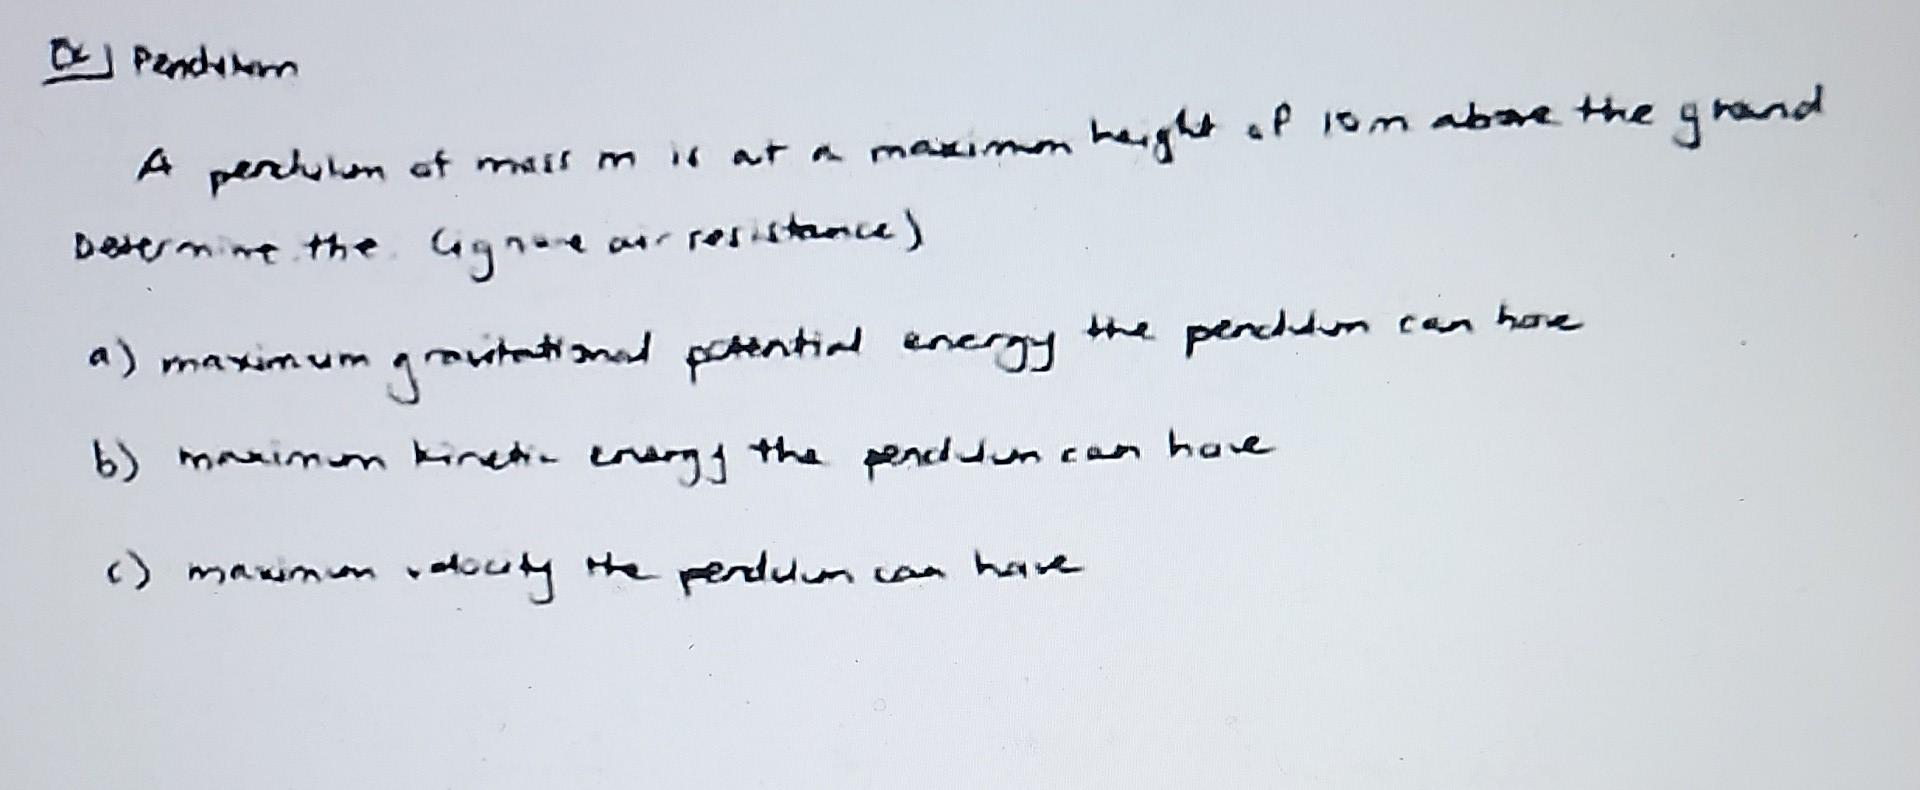 Ex] Pendulum
A pendulum of mass m is at a maximum height of 10m above the ground
Determine the (ignore air resistance)
a) maximum gravitational potential energy the pendulum can have
b) maximum kinetic energy the pendulum can have
c) maximum velocity the pendulum can have